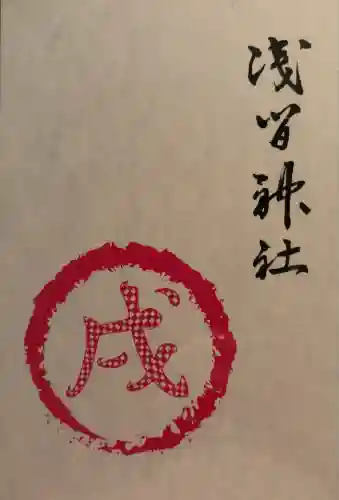 浅間神社
戌